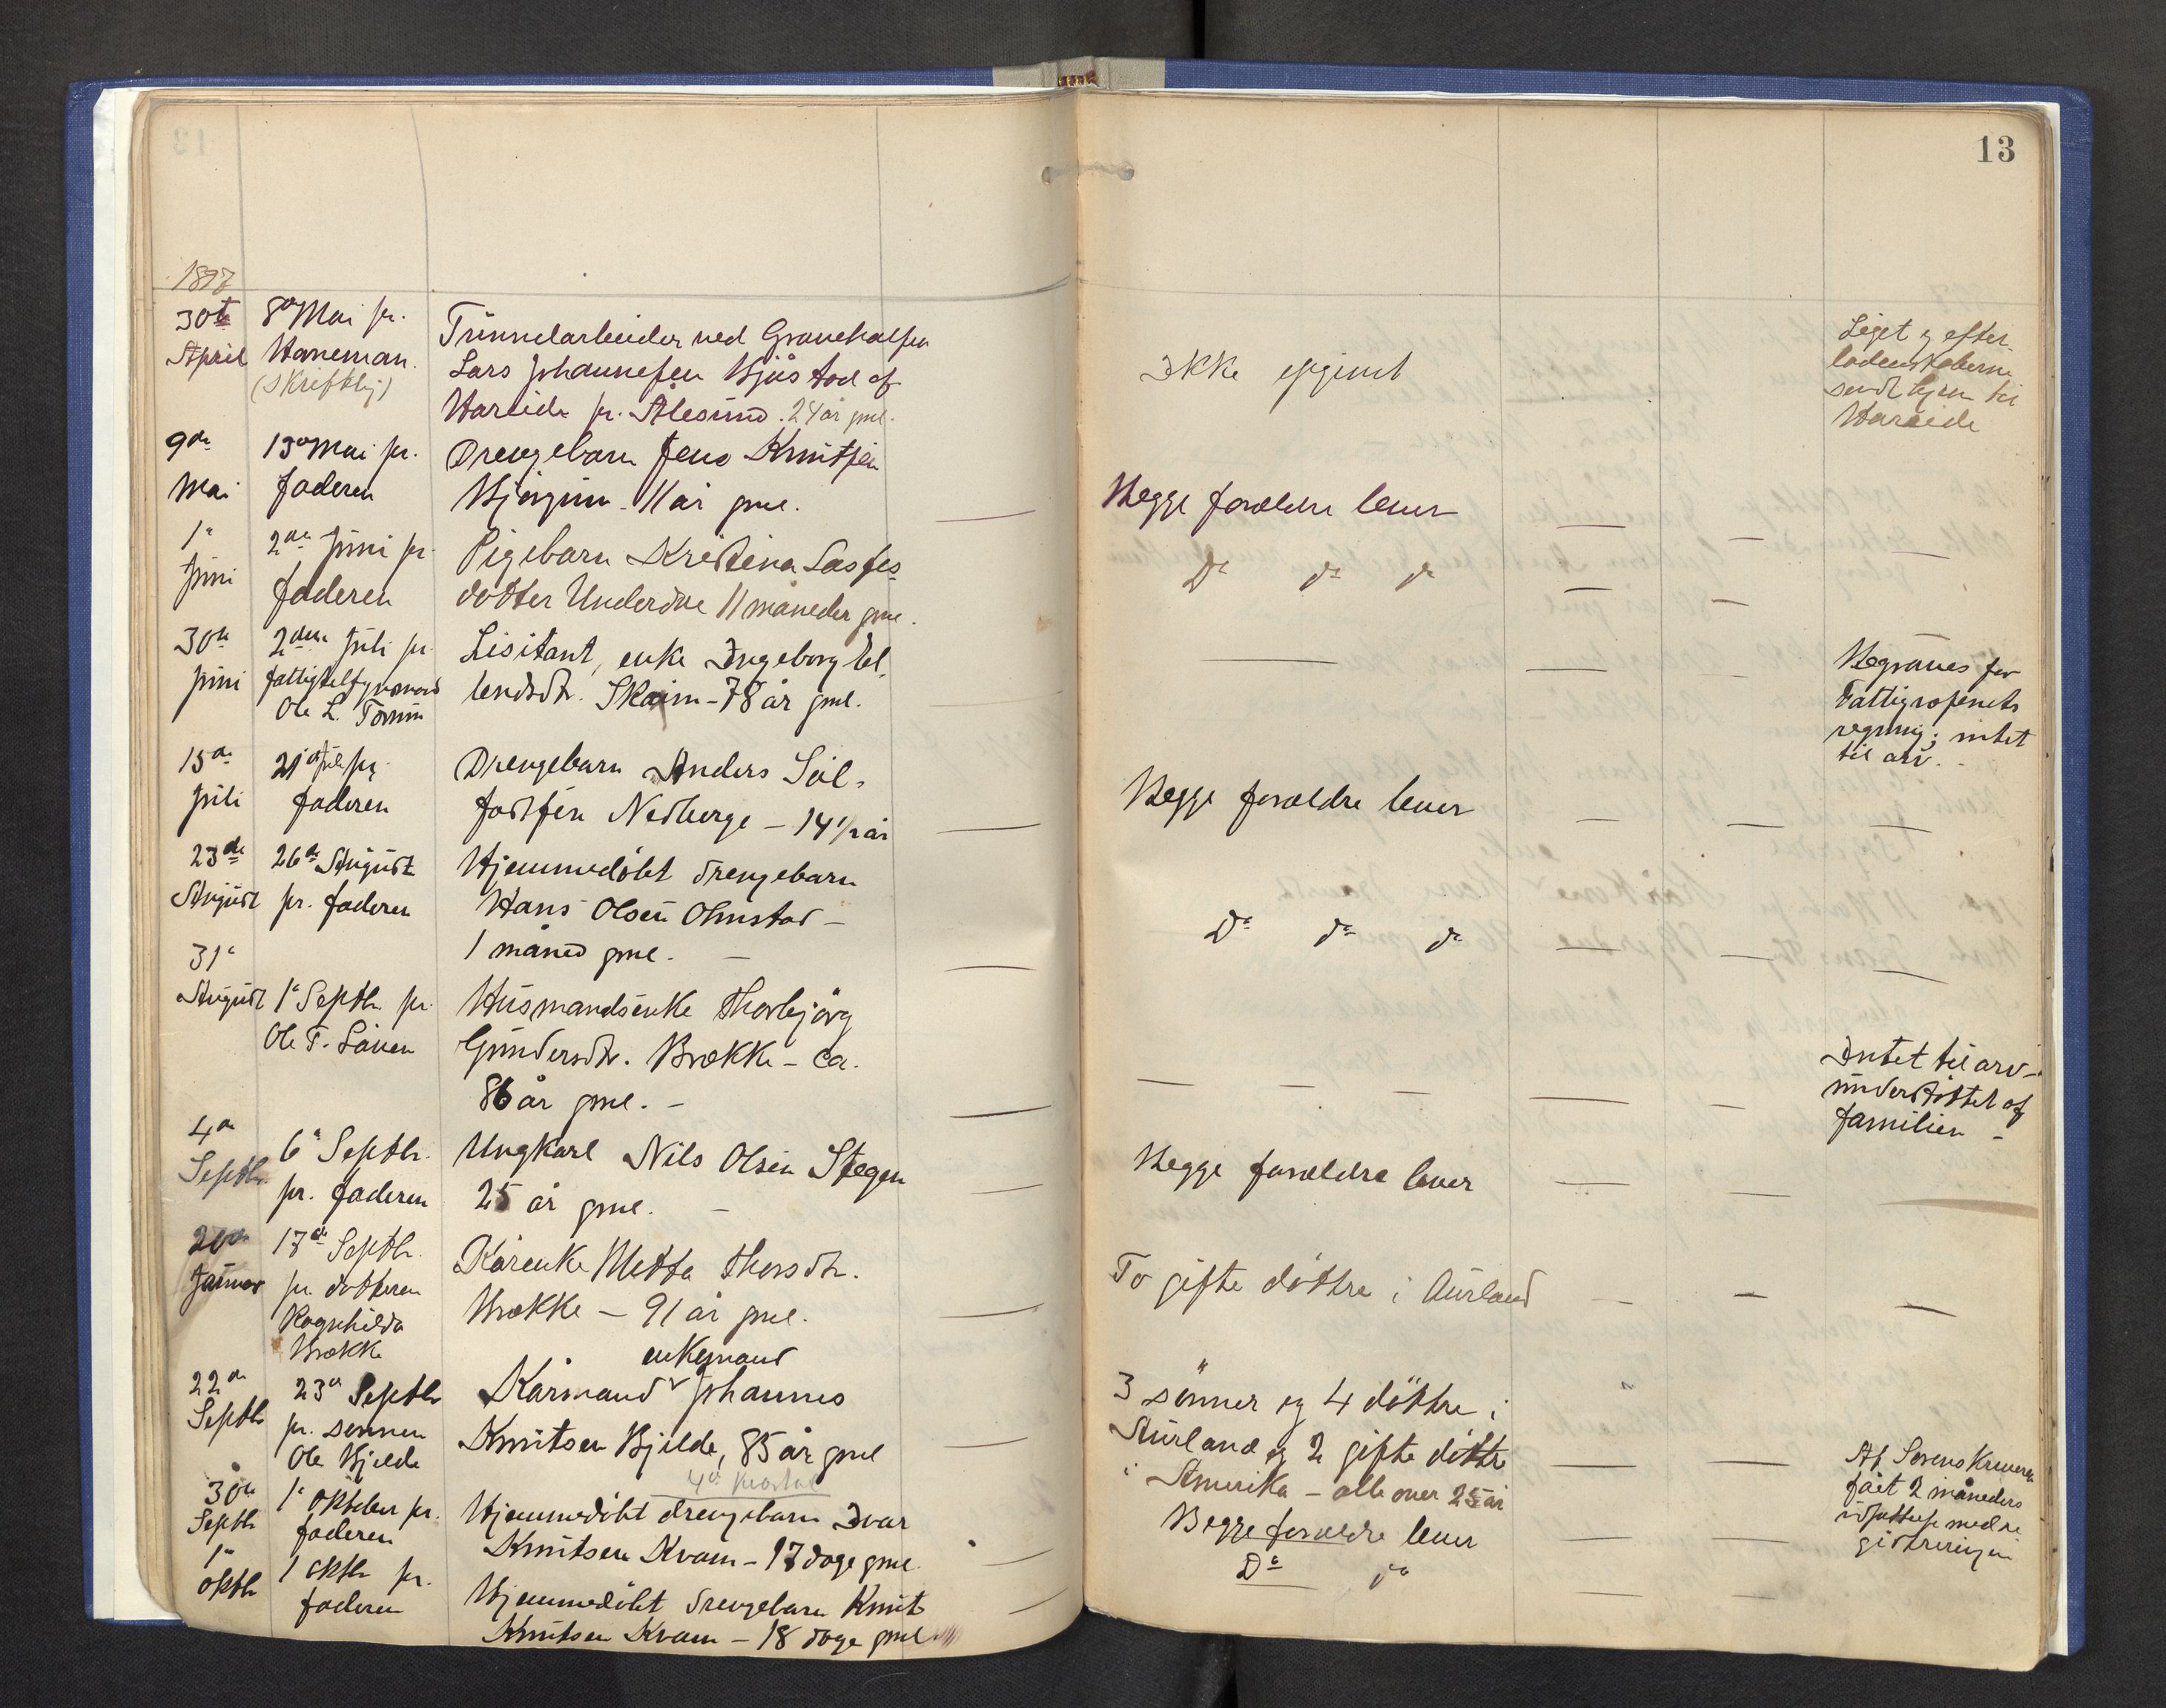 13
30te
April
8de Mai pr.
Haneman.
(skriftlig)
Tunnelarbeider ved Gravehalsen
Lars Johannesen Bjåstad af
Hareide pr. Ålesund. 24 år gml.
Ikke opgivet
Liget og efter-
ladenskaberne
sendt hjem til
Hareide
9de
Mai
13de Mai pr.
faderen
Drengebarn Jens Knutsen
11 år gml.
Begge forældre lever
1e
Juni
2den Juni pr.
faderen
Pigebarn Kristina Lasses-
dotter Underdal 11 måneder gml.
Do do do
30te
Juni
2den Juli pr.
fattigtilsynsmand
Ole L.
Lisitant, enke Ingeborg El-
lendsdtr. Skaim - 78 år gml.
Begraves for
Fattigvæsenets
regning; intet
til arv.
15de
Juli
21de Juli pr.
faderen
Drengebarn Anders Sjul-
Nedberge - 14 1/2 år
Begge forældre lever
23de
August
26de August
pr. faderen
Hjemmedøbt drengebarn
Hans Olsen Ohnstad -
1 måned gml. -
Do do do
31e
August
1e Septbr. pr.
Ole T.
Husmandsenke Thorbjørg
Gundersdtr. Brække - ca.
86 år gml. -
Intet til arv -
understøttet af
familien -
4de
Septbr.
6e Septbr.
pr. faderen
Ungkarl Nils Olsen Stegen
25 år gml. -
Begge forældre lever
20de
Januar
17de Septbr.
pr. datteren
Ragnhilda
Brække
Kårenke Metta Thorsdtr.
Brække - 91 år gml.
To gifte døttre i Aurland
22de
Septbr
23de Septbr
pr. sønnen
Ole Bjelde
enkemand
Kårmand v Johannes
Knutsen Bjelde, 85 år gml
3 sønner og 4 døttre i
Aurland og 2 gifte døttre
i Amerika - alle over 25 år
Af Sorenskriveren
fået 2 måneders
udsættelse med re-
gistreringen
4de kvartal
30te
Septbr
1e oktober pr.
faderen
Hjemmedøbt drengebarn Ivar
Knutsen Kvam - 17 dage gml.
Begge forældre lever
1e
oktbr
1 oktbr pr.
faderen
Hjemmedøbt drengebarn Knut
Knutsen Kvam - 18 dage gml
Do do